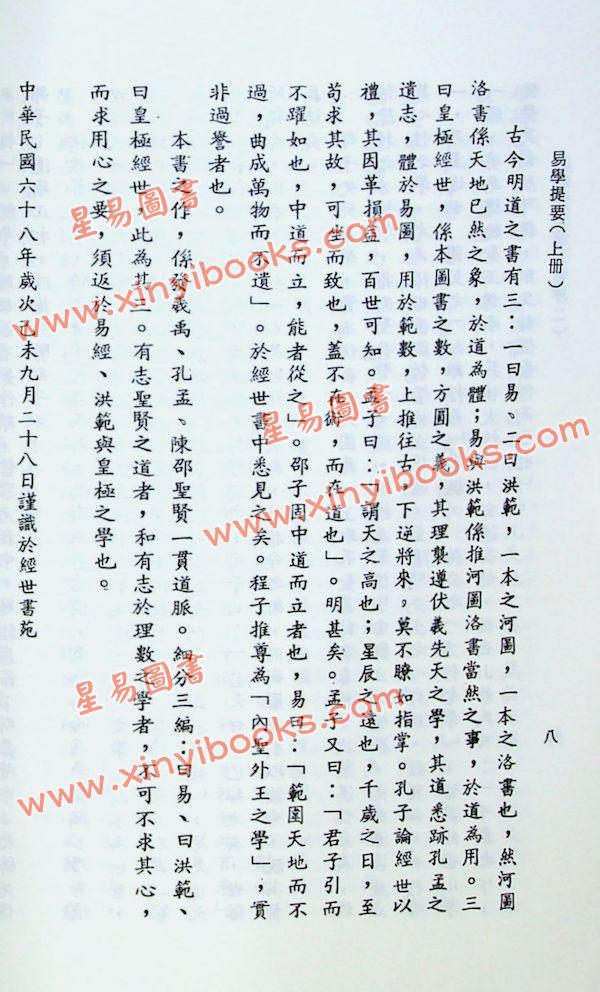 易學提要(上册)
八
古今明道之書有三：一曰易。二曰洪範，一本之河圖，一本之洛書也，然河圖
洛書係天地已然之象，於道為體；易與洪範係推河圖洛書當然之事，於道為用。三
曰皇極經世，係本圖書之數，方圓之義，其理襲遵伏羲先天之學，其道悉跡孔孟之
遺志，體於易圖，用於範數，上推往古，下逆將來，莫不瞭如指掌。孔子論經世以
禮，其因革損益，百世可知。孟子曰：「謂天之高也；星辰之遠也，千歲之日，至
苟求其故，可坐而致也，蓋不在術，而在道也」。明甚矣。孟子又曰：「君子引而
不躍如也，中道而立，能者從之」。邵子固中道而立者也，易曰：「範圍天地而不
過，曲成萬物而不遺」。於經世書中悉見之矣。程子推尊為「內聖外王之學」；實
非過譽者也。
本書之作，係發羲禹、孔孟、陳邵聖賢一貫道脈。細分三編：曰易、曰洪範、
曰皇極經世，此為其三。有志聖賢之道者，和有志於理數之學者，不可不求其心，
而求用心之要，須返於易經、洪範與皇極之學也。
中華民國六十八年歲次己未九月二十八日謹識於經世書苑
星易圖書
www.xinyibooks.com
星易圖書
www.xinyibooks.com
星易圖書
www.xinyibooks.com